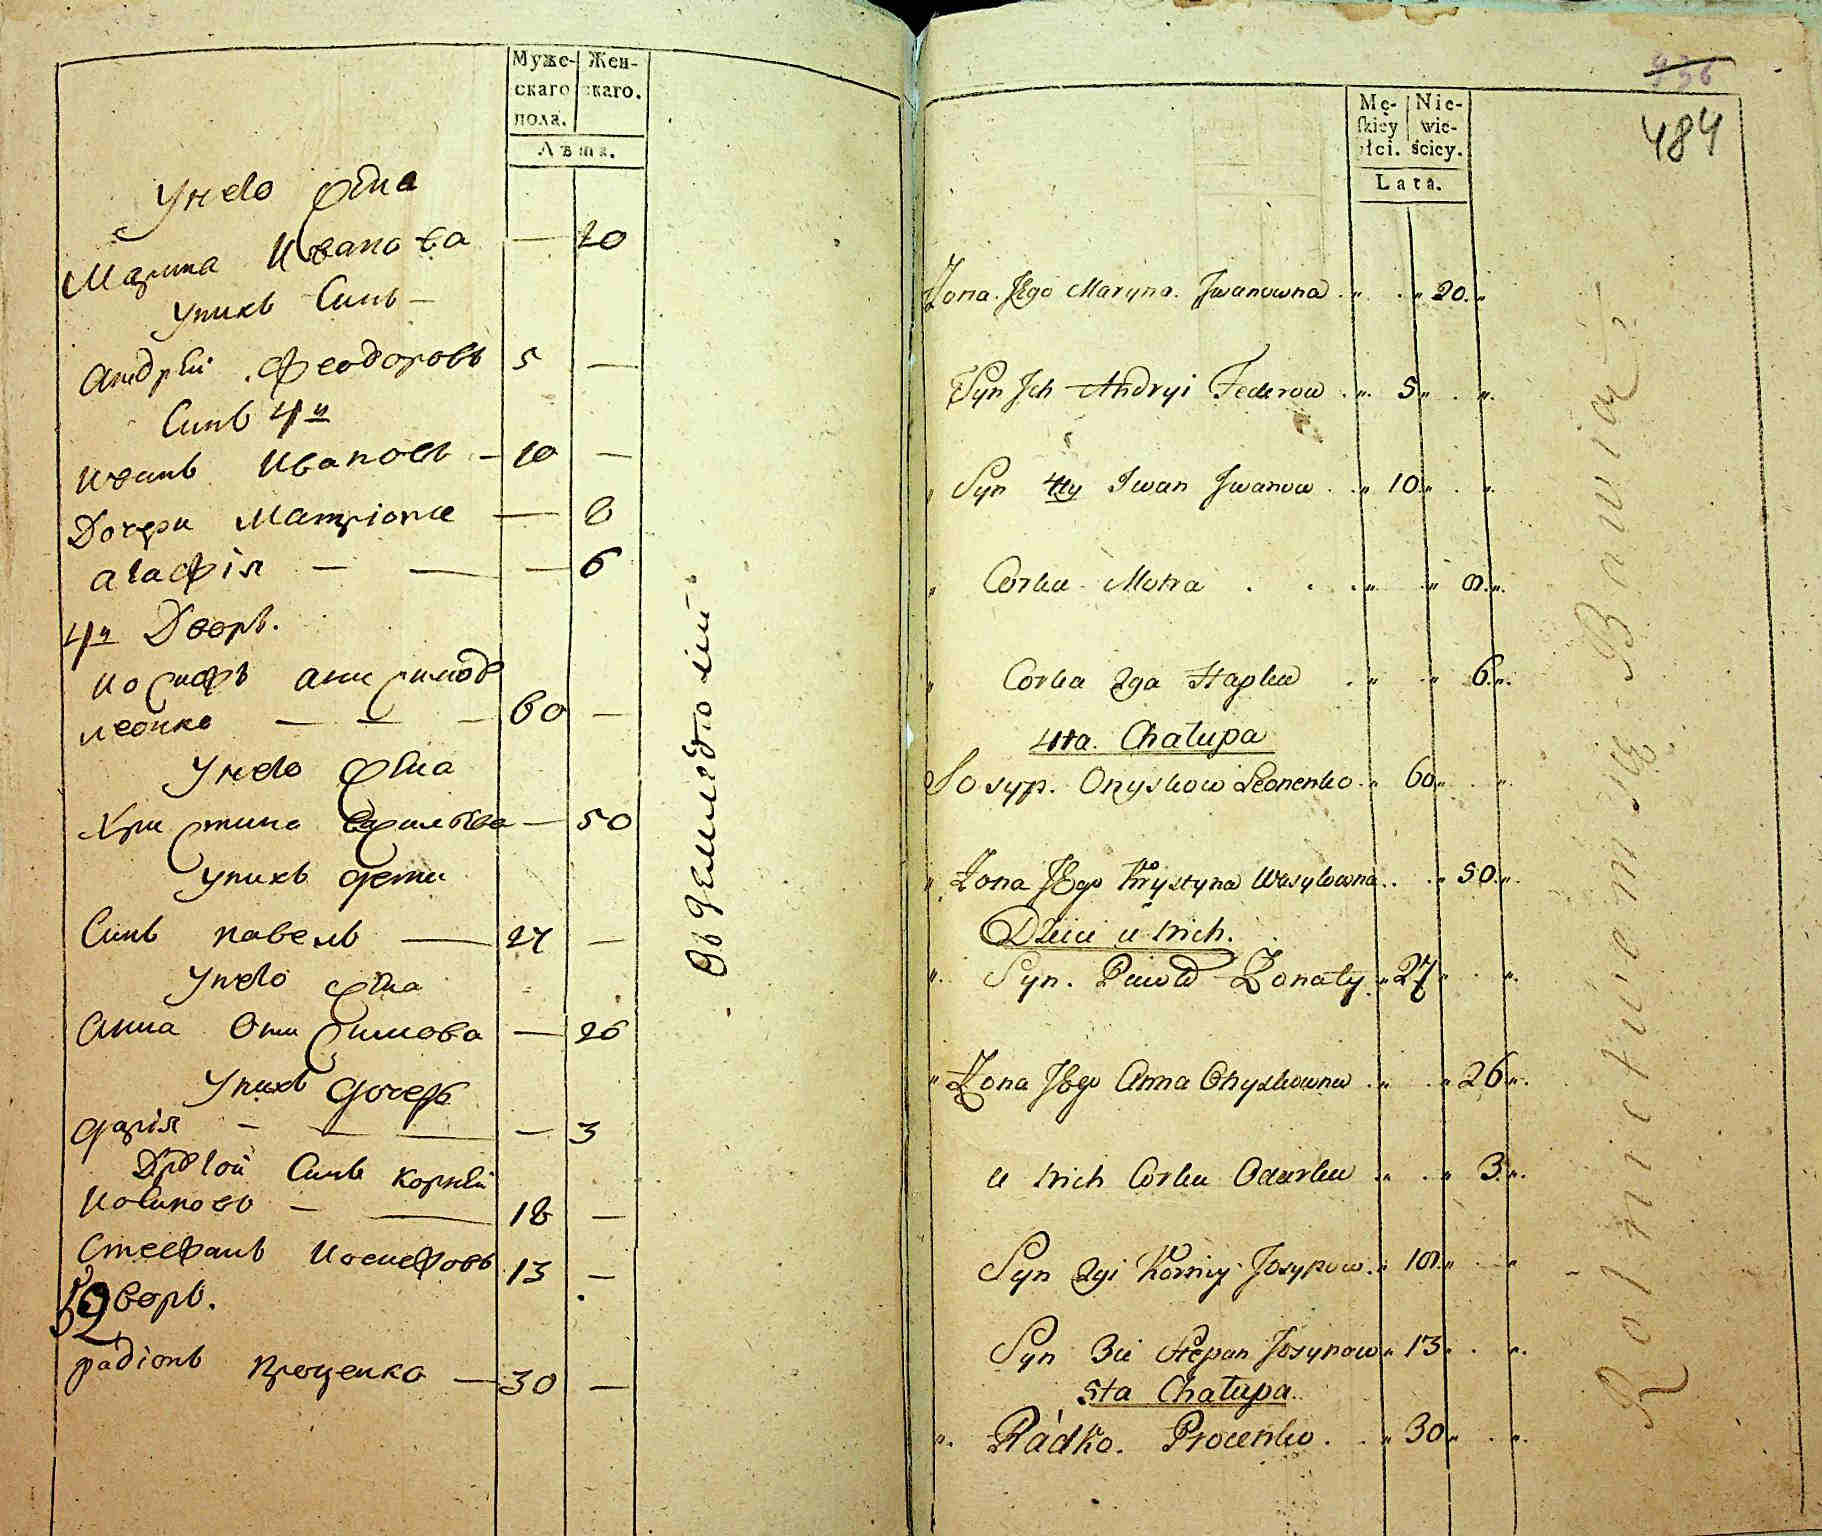 Муже-
скаго
пола.
Жен-
скаго.
Лѣта.
У нево жена
Марина Иванова — 20
У них Синъ —
Андрѣй Феодоровъ 5 —
Синъ 4й
Иванъ Ивановъ — 10 —
Дочери Матрiона — 8
агафiя — — — 6
4й Дворъ.
Иосифъ
леонко — — — 60 —
У нево жена
Христина Василева — 50
У них дети
Синъ павелъ — 27 —
У нево жена
Анна — 26
У них дочерь
дарiя — — — — 3
Другой Синъ корнѣй
— — 18 —
Стефанъ Иосифовъ 13 —
5й Дворъ.
радiонъ проценко — 30 —
Mę-
skiey
płci.
Nie-
wie-
ściey.
Lata.
936
484
Żona Jego Maryna Iwanowna „ „ 20 „
Syn Ich Andryi Fedorow „ 5 „ „
„ Syn 4ty Iwan Iwanow „ 10 „ „
„ Corka Motra „ „ 8 „
„ Corka 2ga Hapka „ „ 6 „
4ta Chałupa
Josyp Onyskow Leonenko „ 60 „ „
„ Żona Jego Krystyna Wasylowna „ 50 „
Dzieci u Nich.
„ Syn. Pawło Żonaty „ 27 „ „
„ Żona Jego Anna Onyskowna „ „ 26 „
u Nich Corka Odarka „ „ 3 „
Syn 2gi Korniy Josypow „ 18 „ „
Syn 3ci Stepan Josypow „ 13 „ „
5ta Chałupa
„ Radko. Procenko „ 30 „ „
Rolnictwem się Bawią